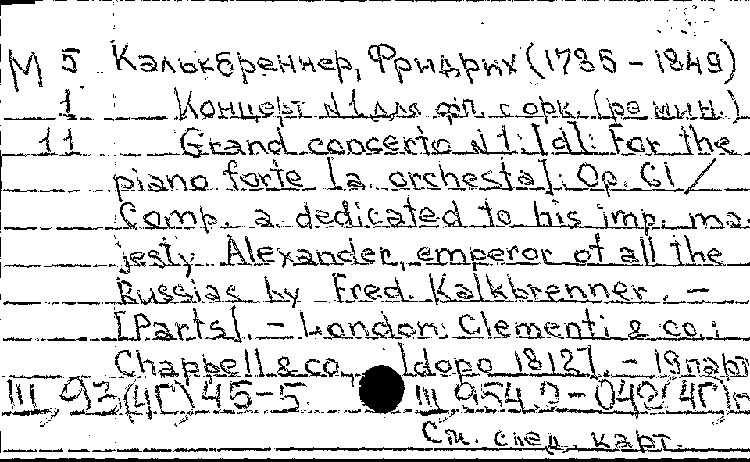 М 5 Калькбреннер, Фридрих (1785 – 1849)
1 Концерт №1 для фп. с орк. (ре мин.)
11 Grand concerto №1: [d]: For the
piano forte [a. orchesta]: Op. 61 /
Comp. a. dedicated to his imp. ma-
jesty Alexander, emperor of all the
Russias by Fred. Kalkbrenner. –
[Parts]. – London: Clementi & co.;
Chappell & co., [доро 1812]. – 19 парт
III, 93(4Г) 45-5 III, 954.2-042(4Г)
См. след. карт.